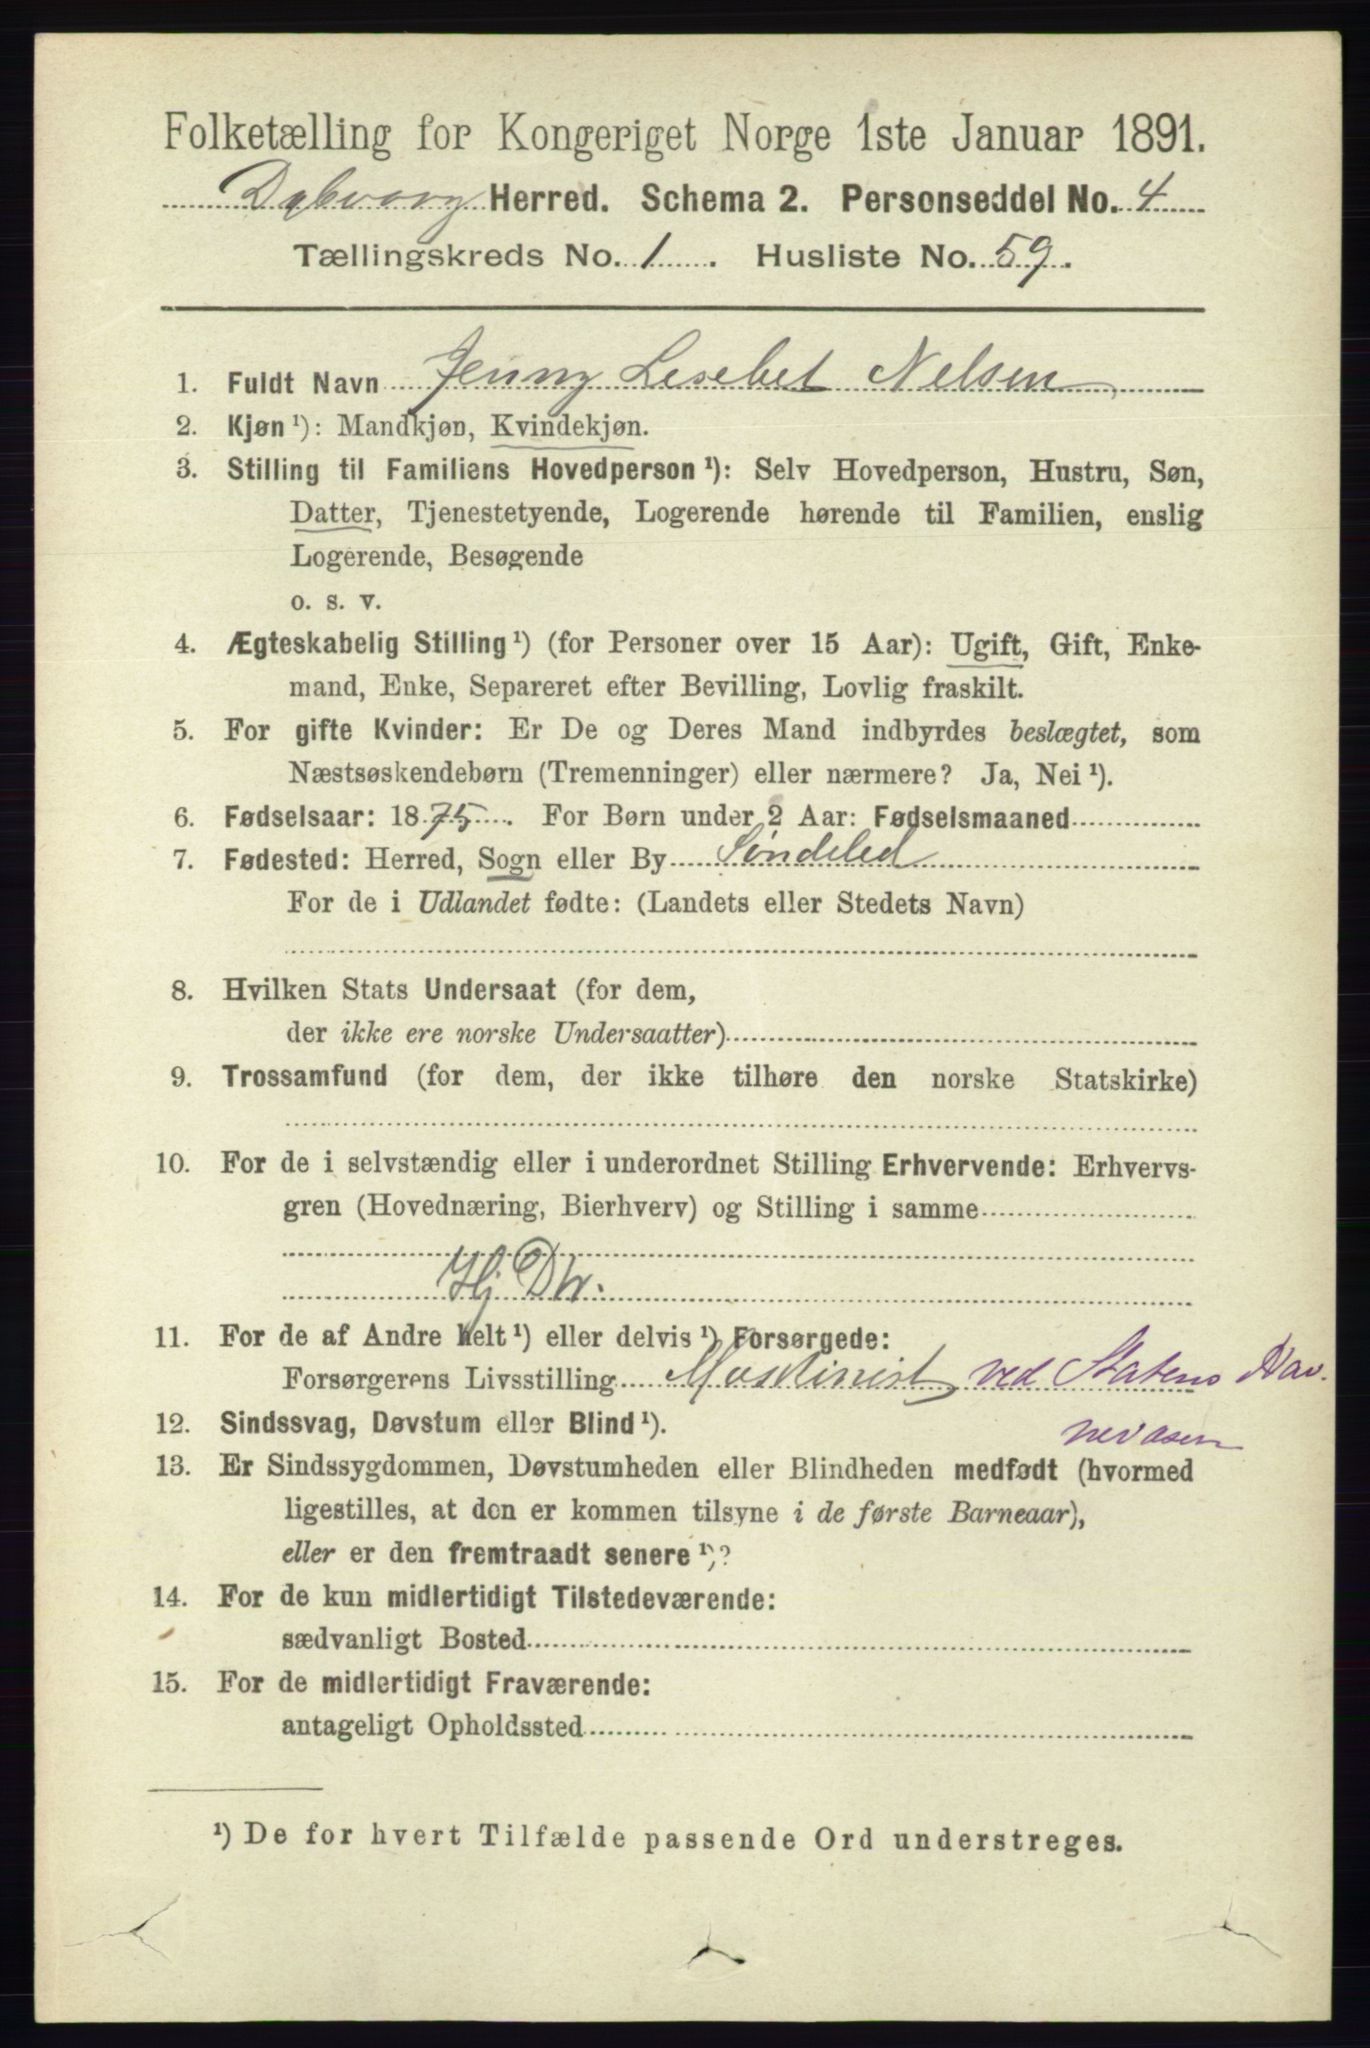 Folketælling for Kongeriget Norge 1ste Januar 1891.
Dybvaag Herred. Schema 2. Personseddel No. 4
Tællingskreds No. 1. Husliste No. 59.
1. Fuldt Navn Jenny Lesebet Nelsen
2. Kjøn ¹): Mandkjøn, Kvindekjøn.
3. Stilling til Familiens Hovedperson ¹): Selv Hovedperson, Hustru, Søn,
Datter, Tjenestetyende, Logerende hørende til Familien, enslig
Logerende, Besøgende
o. s. v.
4. Ægteskabelig Stilling ¹) (for Personer over 15 Aar): Ugift, Gift, Enke-
mand, Enke, Separeret efter Bevilling, Lovlig fraskilt.
5. For gifte Kvinder: Er De og Deres Mand indbyrdes beslægtet, som
Næstsøskendebørn (Tremenninger) eller nærmere? Ja, Nei ¹).
6. Fødselsaar: 1875. For Børn under 2 Aar: Fødselsmaaned
7. Fødested: Herred, Sogn eller By Søndeled
For de i Udlandet fødte: (Landets eller Stedets Navn)
8. Hvilken Stats Undersaat (for dem,
der ikke ere norske Undersaatter)
9. Trossamfund (for dem, der ikke tilhøre den norske Statskirke)
10. For de i selvstændig eller i underordnet Stilling Erhvervende: Erhvervs-
gren (Hovednæring, Bierhverv) og Stilling i samme
Hj Dtr.
11. For de af Andre helt ¹) eller delvis ¹) Forsørgede:
Forsørgerens Livsstilling Maskinist ved Statens Hav
nevæsen
12. Sindssvag, Døvstum eller Blind ¹).
13. Er Sindssygdommen, Døvstumheden eller Blindheden medfødt (hvormed
ligestilles, at den er kommen tilsyne i de første Barneaar),
eller er den fremtraadt senere ¹)?
14. For de kun midlertidigt Tilstedeværende:
sædvanligt Bosted
15. For de midlertidigt Fraværende:
antageligt Opholdssted
¹) De for hvert Tilfælde passende Ord understreges.